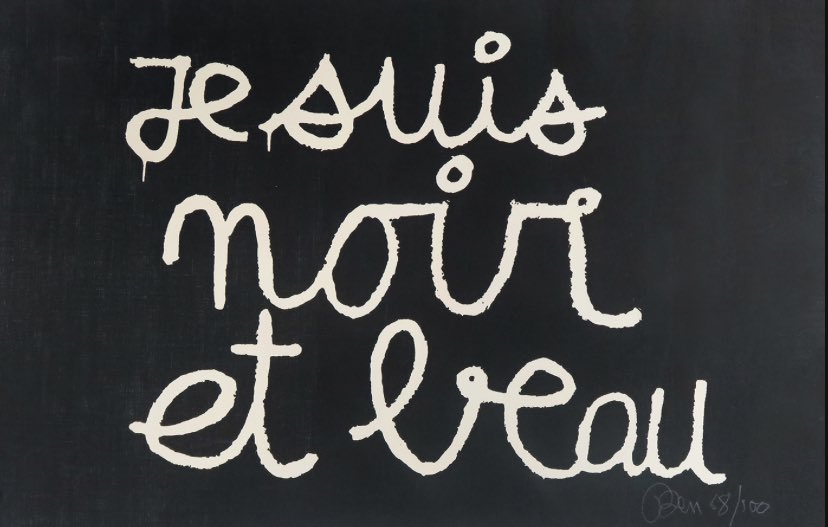 Je suis
noir
et beau
Ben 68/100